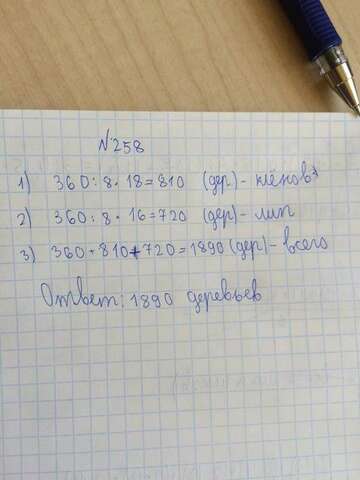 N258
1) 360:8·18=810 (дер)-клёнов
2) 360:8·16=720 (дер)-лип
3) 360+810+720=1890(дер)-всего
Ответ: 1890 деревьев